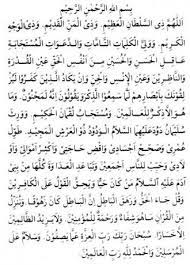 بِسْمِ اللهِ الرَّحْمٰنِ الرَّحِيْمِ
اَللّٰهُمَّ ذِى السُّلْطَانِ الْعَظِيْمِ. وَذِى الْمَنِّ الْقَدِيْمِ. وَذِى الْوَجْهِ
الْكَرِيْمِ. وَوَلِيِّ الْكَلِمَاتِ التَّامَّاتِ وَالدَّعَوَاتِ الْمُسْتَجَابَةِ
عَاقِلِ الْحَسَنِ وَالْحُسَيْنِ مِنْ اَنْفُسِ الْحَقِّ
وَعَيْنِ الْاِنْسِ وَالْجِنِّ وَاِنْ يَكَادُ الَّذِيْنَ كَفَرُوْا
لَيُزْلِقُوْنَكَ بِاَبْصَارِهِمْ لَمَّا سَمِعُوا الذِّكْرَ وَيَقُوْلُوْنَ اِنَّهُ لَمَجْنُوْنٌ. وَمَا
هُوَ اِلَّا ذِكْرٌ لِلْعَالَمِيْنَ.
سُلَيْمَانُ دَاوُدَ عَلَيْهِمَا السَّلَامُ الْوَدُوْدُ ذُو الْعَرْشِ الْمَجِيْدِ. طَوِّلْ
عُمْرِىْ وَصَحِّحْ اَجْسَادِىْ وَاقْضِ حَاجَتِىْ وَاَكْثِرْ اَمْوَالِىْ وَ
اَوْلَادِىْ وَحَبِّبْ لِلنَّاسِ اَجْمَعِيْنَ وَتَبَاعَدِ الْعَدَاوَةَ كُلَّهَا مِنْ بَنِىْ
اٰدَمَ عَلَيْهِ السَّلَامُ مَنْ كَانَ حَيًّا وَيَحِقَّ الْقَوْلُ عَلَى الْكَافِرِيْنَ
وَقُلْ جَاءَ الْحَقُّ وَزَهَقَ الْبَاطِلُ اِنَّ الْبَاطِلَ كَانَ زَهُوْقًا. وَنُنَزِّلُ
مِنَ الْقُرْاٰنِ مَا هُوَ شِفَاءٌ وَرَحْمَةٌ لِلْمُؤْمِنِيْنَ. وَلَا يَزِيْدُ الظَّالِمِيْنَ
اِلَّا خَسَارًا. سُبْحَانَ رَبِّكَ رَبِّ الْعِزَّةِ عَمَّا يَصِفُوْنَ. وَسَلَامٌ عَلَى
الْمُرْسَلِيْنَ وَالْحَمْدُ لِلّٰهِ رَبِّ الْعَالَمِيْنَ